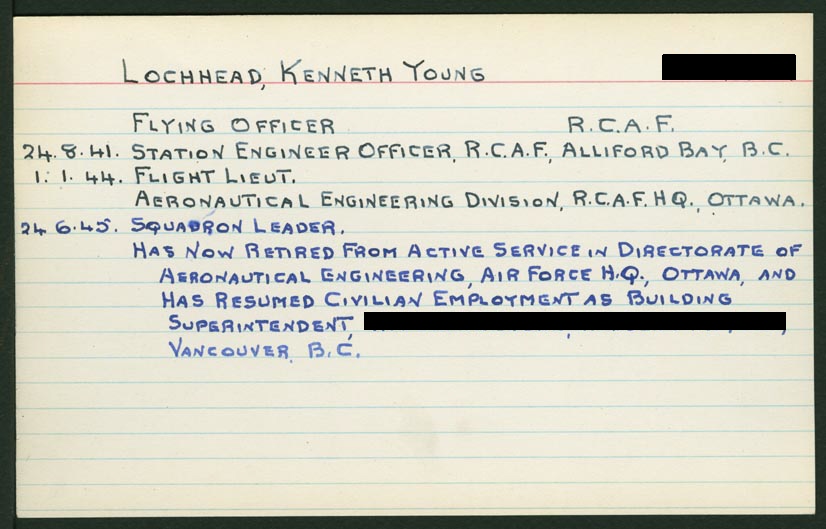 LOCHHEAD, KENNETH YOUNG
FLYING OFFICER R.C.A.F.
24.8.41. STATION ENGINEER OFFICER, R.C.A.F., ALLIFORD BAY, B.C.
1.1.44. FLIGHT LIEUT.
AERONAUTICAL ENGINEERING DIVISION, R.C.A.F. HQ., OTTAWA.
24.6.45. SQUADRON LEADER.
HAS NOW RETIRED FROM ACTIVE SERVICE IN DIRECTORATE OF
AERONAUTICAL ENGINEERING, AIR FORCE H.Q., OTTAWA, AND
HAS RESUMED CIVILIAN EMPLOYMENT AS BUILDING
SUPERINTENDENT,
VANCOUVER, B.C.